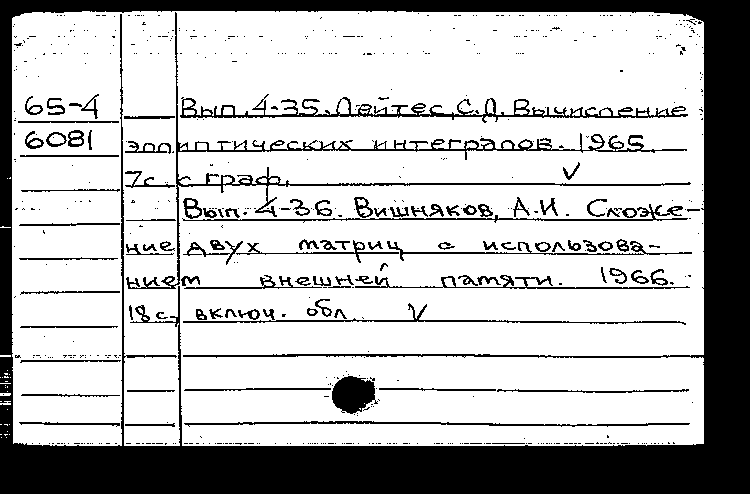 65-4 Вып. 4-35. Лейтес, С.Д. Вычисление
6081 эллиптических интегралов. 1965.
7с. с граф. V
Вып. 4-36. Вишняков, А.И. Сложе-
ние двух матриц с использова-
нием внешней памяти. 1966.
18 с., включ. обл. V